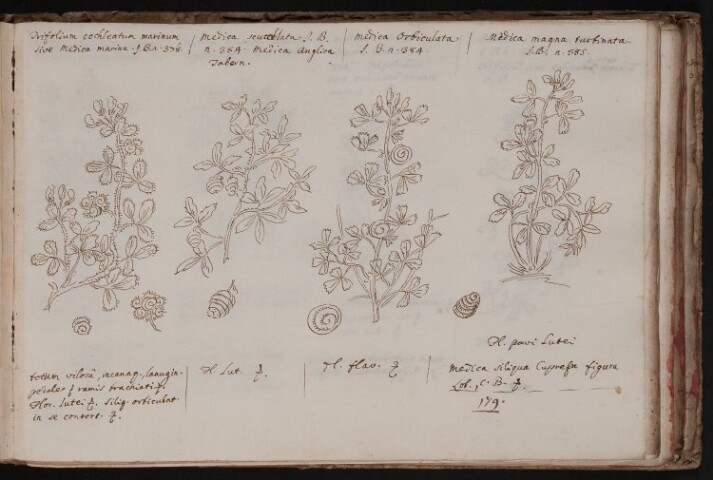 Trifolium cochleatum marinum
sive Medica marina J.B. n. 378
Medica scutellata J. B.
n. 384 Medica Anglica
Tabern.
Medica Orbiculata
J. B. n. 384.
Medica magna turbinata
J.B. n. 385.
totum vilosũ, incanag. lanugin-
ramis brachiati
Flor. lutei siliq. orbiculat.
in se contort.
Fl. Lut.
Fl. flav.
Fl. parvi Lutei
Medica siliqua Cupressi figura
Lob. C. B.
179.